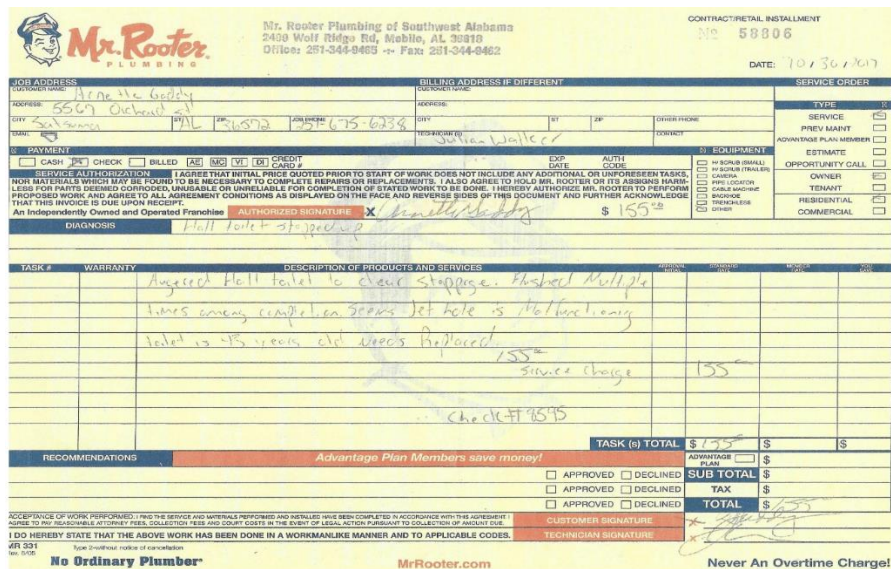 Mr. Rooter.
PLUMBING
Mr. Rooter Plumbing of Southwest Alabama
2490 Wolf Ridge Rd, Mobile, AL 36618
Office: 251-344-9465 -:- Fax: 251-344-9462
CONTRACT/RETAIL INSTALLMENT
No 58806
DATE: 10/30/2017
JOB ADDRESS
BILLING ADDRESS IF DIFFERENT
SERVICE ORDER
CUSTOMER NAME: Annette Gaddy
CUSTOMER NAME:
ADDRESS: 5567 Orchard St
ADDRESS:
CITY Satsuma ST AL ZIP 36572 JOB PHONE 251-675-6238
CITY ST ZIP OTHER PHONE
EMAIL
TECHNICIAN (S) Julian Walker
CONTACT
TYPE
SERVICE
PREV MAINT
ADVANTAGE PLAN MEMBER
ESTIMATE
OPPORTUNITY CALL
OWNER
TENANT
RESIDENTIAL
COMMERCIAL
PAYMENT
CASH CHECK BILLED AE MC VI DI CREDIT CARD # EXP DATE AUTH CODE
EQUIPMENT
H/ SCRUB (SMALL)
H/ SCRUB (TRAILER)
CAMERA
PIPE LOCATOR
CABLE MACHINE
BACKHOE
TRENCHLESS
OTHER
SERVICE AUTHORIZATION I AGREE THAT INITIAL PRICE QUOTED PRIOR TO START OF WORK DOES NOT INCLUDE ANY ADDITIONAL OR UNFORESEEN TASKS,
NOR MATERIALS WHICH MAY BE FOUND TO BE NECESSARY TO COMPLETE REPAIRS OR REPLACEMENTS. I ALSO AGREE TO HOLD MR. ROOTER OR ITS ASSIGNS HARM-
LESS FOR PARTS DEEMED CORRODED, UNUSABLE OR UNRELIABLE FOR COMPLETION OF STATED WORK TO BE DONE. I HEREBY AUTHORIZE MR. ROOTER TO PERFORM
PROPOSED WORK AND AGREE TO ALL AGREEMENT CONDITIONS AS DISPLAYED ON THE FACE AND REVERSE SIDES OF THIS DOCUMENT AND FURTHER ACKNOWLEDGE
THAT THIS INVOICE IS DUE UPON RECEIPT.
An Independently Owned and Operated Franchise AUTHORIZED SIGNATURE X Annette Gaddy $ 155.00
DIAGNOSIS Hall toilet stopped up
TASK # WARRANTY DESCRIPTION OF PRODUCTS AND SERVICES APPROVAL INITIAL STANDARD RATE MEMBER RATE YOU SAVE
Augered Hall toilet to clear stoppage. Flushed Multiple
times among completion. Seems Jet hole is Malfunctioning
toilet is 45 years old Needs Replaced.
155
Service Charge 155
Check# 8595
TASK (s) TOTAL $ 155 $ $
RECOMMENDATIONS Advantage Plan Members save money! ADVANTAGE PLAN $
APPROVED DECLINED SUB TOTAL $
APPROVED DECLINED TAX $
APPROVED DECLINED TOTAL $ 155
ACCEPTANCE OF WORK PERFORMED. I FIND THE SERVICE AND MATERIALS PERFORMED AND INSTALLED HAVE BEEN COMPLETED IN ACCORDANCE WITH THIS AGREEMENT. I
AGREE TO PAY REASONABLE ATTORNEY FEES, COLLECTION FEES AND COURT COSTS IN THE EVENT OF LEGAL ACTION PURSUANT TO COLLECTION OF AMOUNT DUE.
CUSTOMER SIGNATURE X
I DO HEREBY STATE THAT THE ABOVE WORK HAS BEEN DONE IN A WORKMANLIKE MANNER AND TO APPLICABLE CODES.
TECHNICIAN SIGNATURE X
MR 331
Type 2-without notice of cancellation
No Ordinary Plumber
MrRooter.com
Never An Overtime Charge!